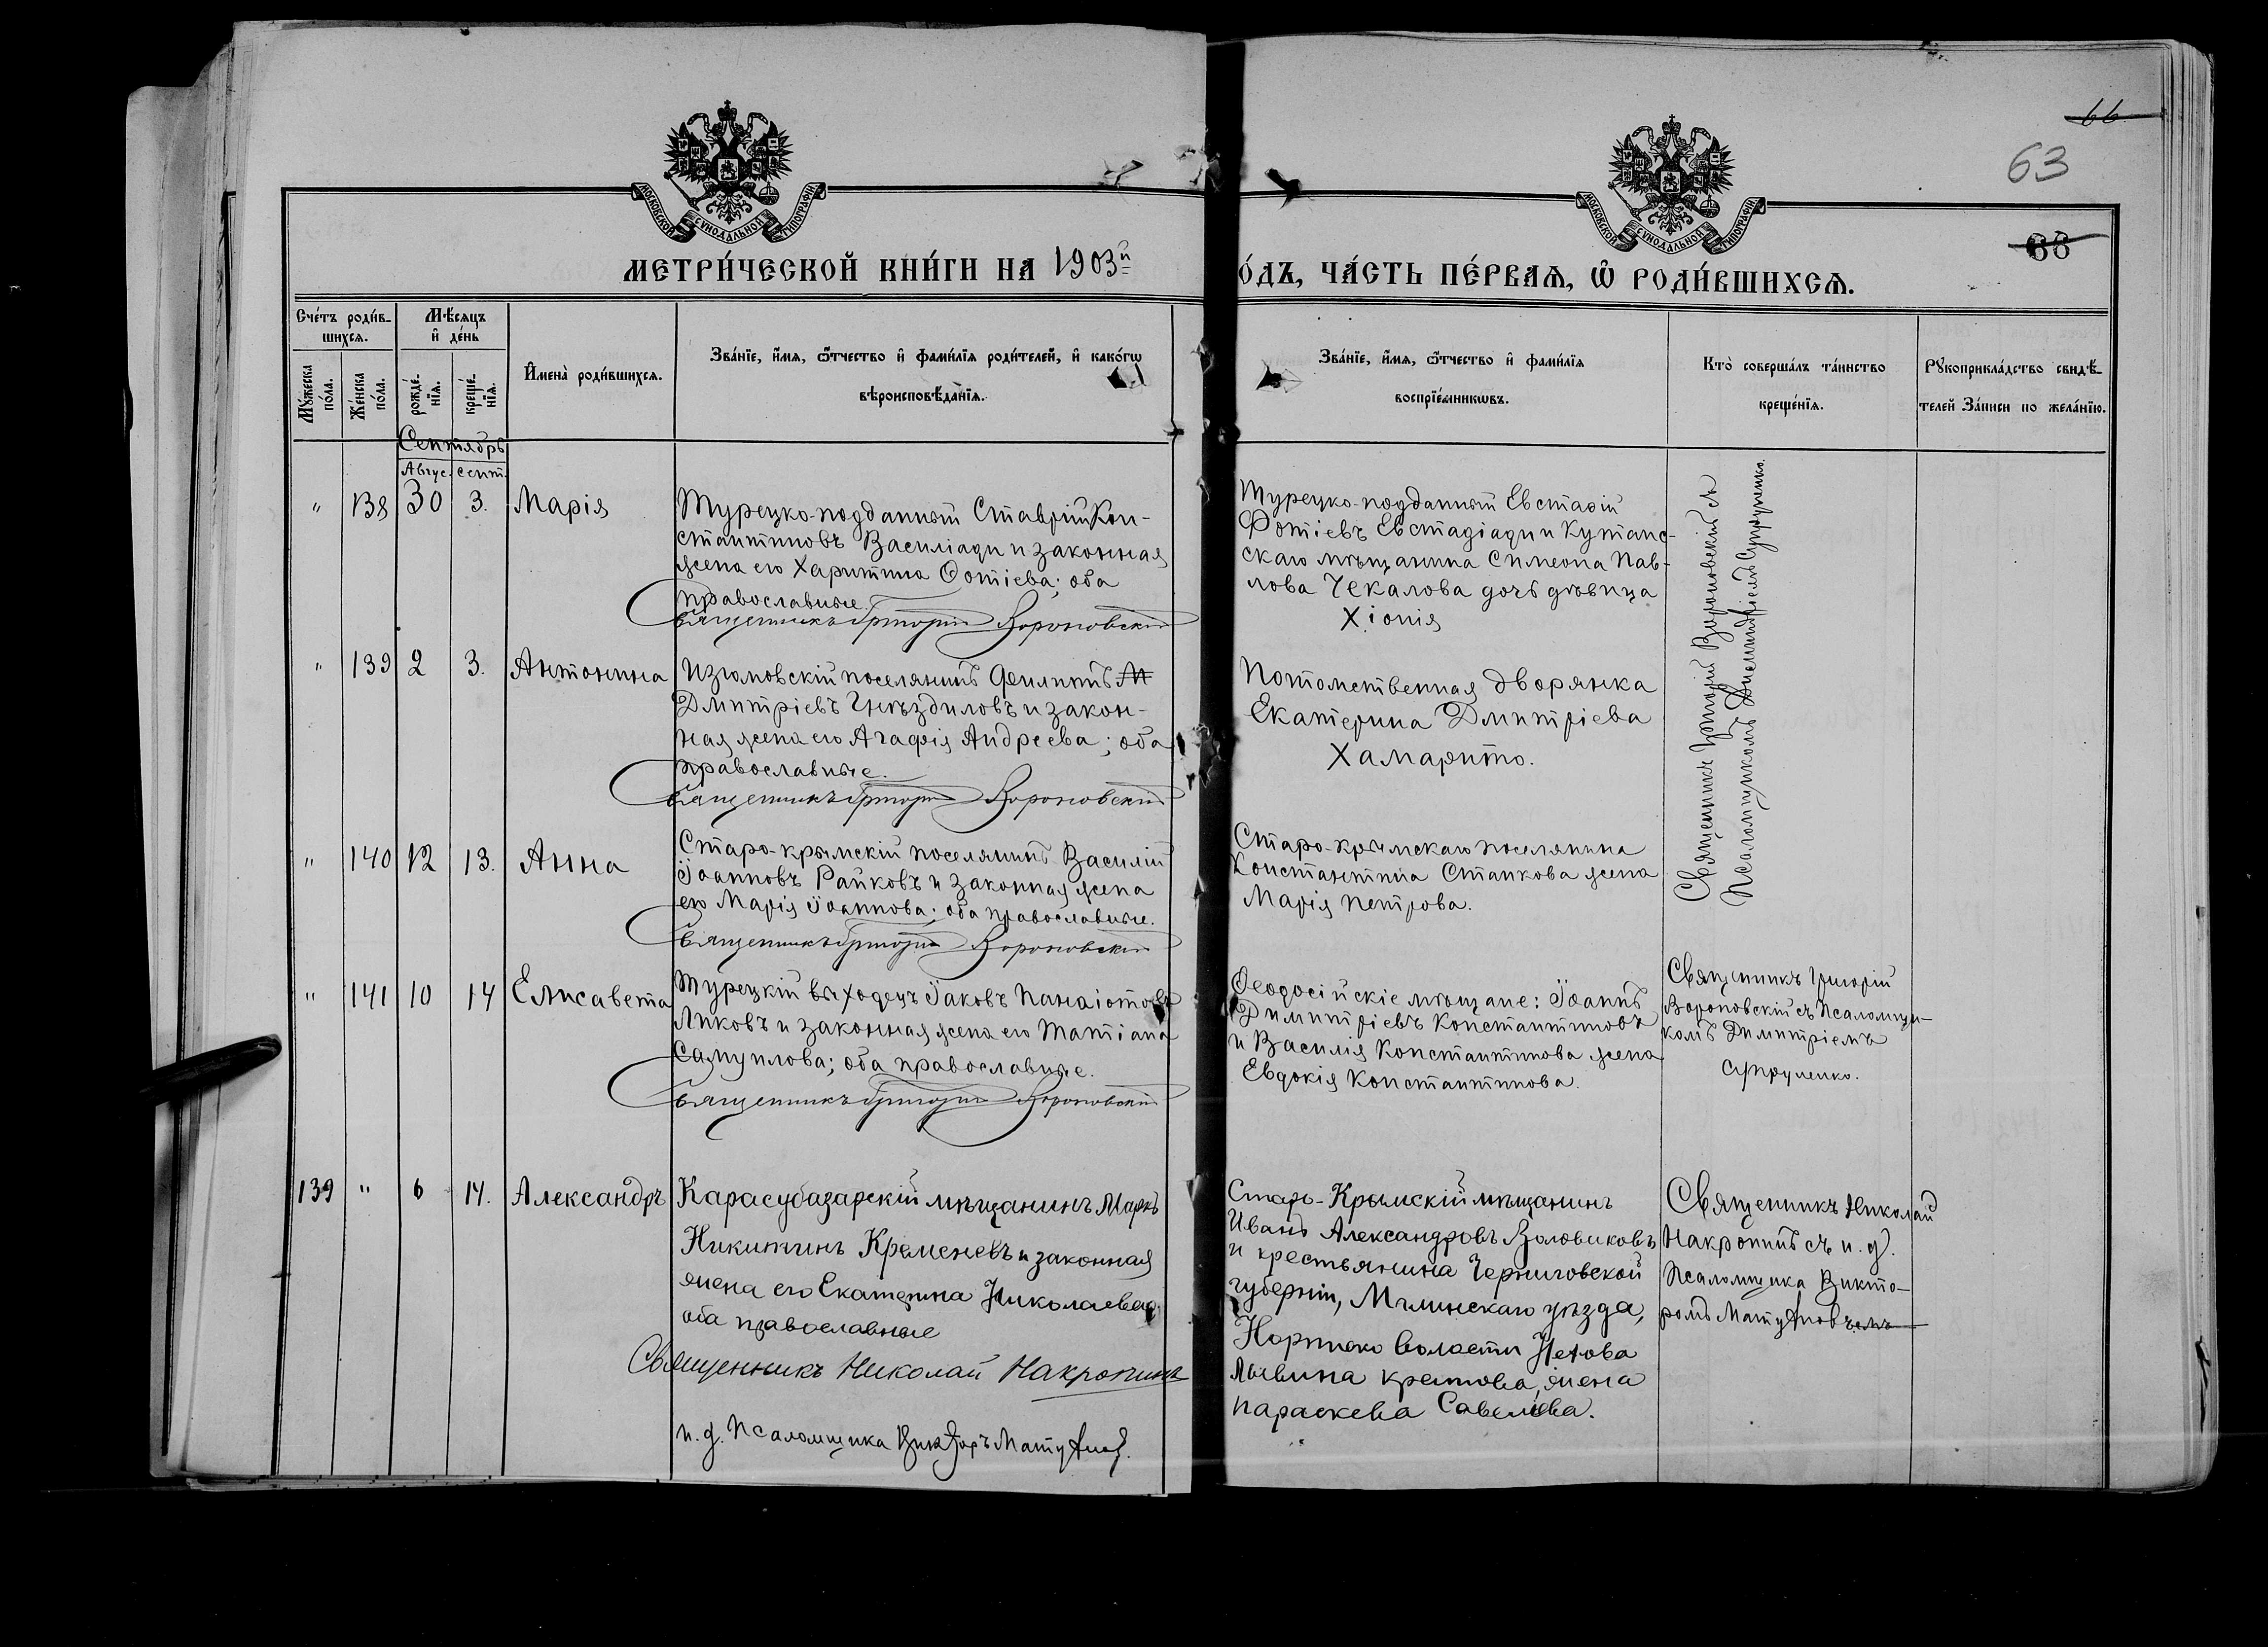 66
63
68
МОСКОВСКОЙ СУНОДАЛЬНОЙ ТИПОГРАФІИ
МОСКОВСКОЙ СУНОДАЛЬНОЙ ТИПОГРАФІИ
МЕТРИ́ЧЕСКОЙ КНИ́ГИ НА 1903й
О́ДЪ, ЧА́СТЬ ПЕ́РВАѦ, Ѿ РОДИ́ВШИХСѦ.
Сче́тъ роди́в-
шихсѧ.
Мꙋ́жеска по́ла.
Же́нска по́ла.
Мѣ́сѧцъ и҆ де́нь
рожде́-нїѧ.
креще́-нїѧ.
И҆мена̀ роди́вшихсѧ.
Зва́нїе, и҆́мѧ, ѻ҆́тчество и҆ фами́лїѧ роди́телей, и҆ како́гѡ
вѣроисповѣ́данїѧ.
Зва́нїе, и҆́мѧ, ѻ҆́тчество и҆ фами́лїѧ
воспрїе́мникѡвъ.
Кто̀ соверша́лъ та́инство
креще́нїѧ.
Рꙋкоприкла́дство свидѣ́-
телей за́писи по жела́нїю.
Сентябрь
Авгус. Сент.
" 138 30 3. Марія
Турецко-подданный Ставрій Кон-
стантиновъ Василіади и законная
жена его Харитина Фотіева; оба
православные.
Священникъ Григорій Вороновскій
Турецко-подданный Евстафій
Фотіевъ Евстадіади и Кутаис-
скаго мѣщанина Симеона Пав-
лова Чекалова дочь дѣвица
Хіонія
Священникъ Григорій Вороновскій съ
Псаломщикомъ Димитріемъ Супруненко.
" 139 2 3. Антонина
Изюмовскій поселянинъ Филиппъ М
Дмитріевъ Гнѣздиловъ и закон-
ная жена его Агафія Андреева; оба
православные.
Священникъ Григорій Вороновскій
Потомственная дворянка
Екатерина Дмитріева
Хамарито.
" 140 12 13. Анна
Старо-крымскій поселянинъ Василій
Іоанновъ Райковъ и законная жена
его Марія Іоаннова; оба православные.
Священникъ Григорій Вороновскій
Старо-крымскаго поселянина
Константина Станкова жена
Марія Петрова.
" 141 10 14 Елисавета
Турецкій выходецъ Іаковъ Панаіотовъ
Ликовъ и законная жена его Татіана
Самуилова; оба православные.
Священникъ Григорій Вороновскій
Ѳеодосійскіе мѣщане: Іоаннъ
Димитріевъ Константиновъ
и Василія Константинова жена
Евдокія Константинова.
Священникъ Григорій
Вороновскій съ Псаломщи-
комъ Димитріемъ
Супруненко.
139 " 6 14. Александръ
Карасубазарскій мѣщанинъ Маркъ
Никитинъ Кременевъ и законная
жена его Екатерина Николаева;
оба православные
Священникъ Николай Накропинъ
и. д. Псаломщика Викторъ
Старо-Крымскій мѣщанинъ
Иванъ Александровъ Золовиковъ
и крестьянина Черниговской
губерніи, Мглинскаго уѣзда,
волости
жена
Параскева Савельева.
Священникъ Николай
Накропинъ съ и. д.
Псаломщика Викто-
ромъ